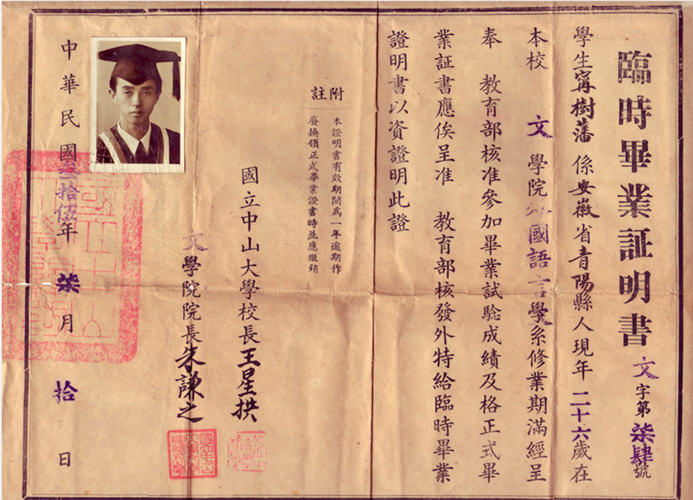 臨時畢業証明書 文字第柒肆號
學生甯樹藩係安徽省青陽縣人現年二十六歲在
本校 文學院外國語言學系修業期滿經呈
奉 教育部核准參加畢業試驗成績及格正式畢
業証書應俟呈准 教育部核發外特給臨時畢業
證明書以資證明此證
附註 本證明書有效期間為一年逾期作
廢換領正式畢業證書時並應繳銷
國立中山大學校長王星拱
文學院院長朱謙之
中華民國叁拾伍年柒月拾日